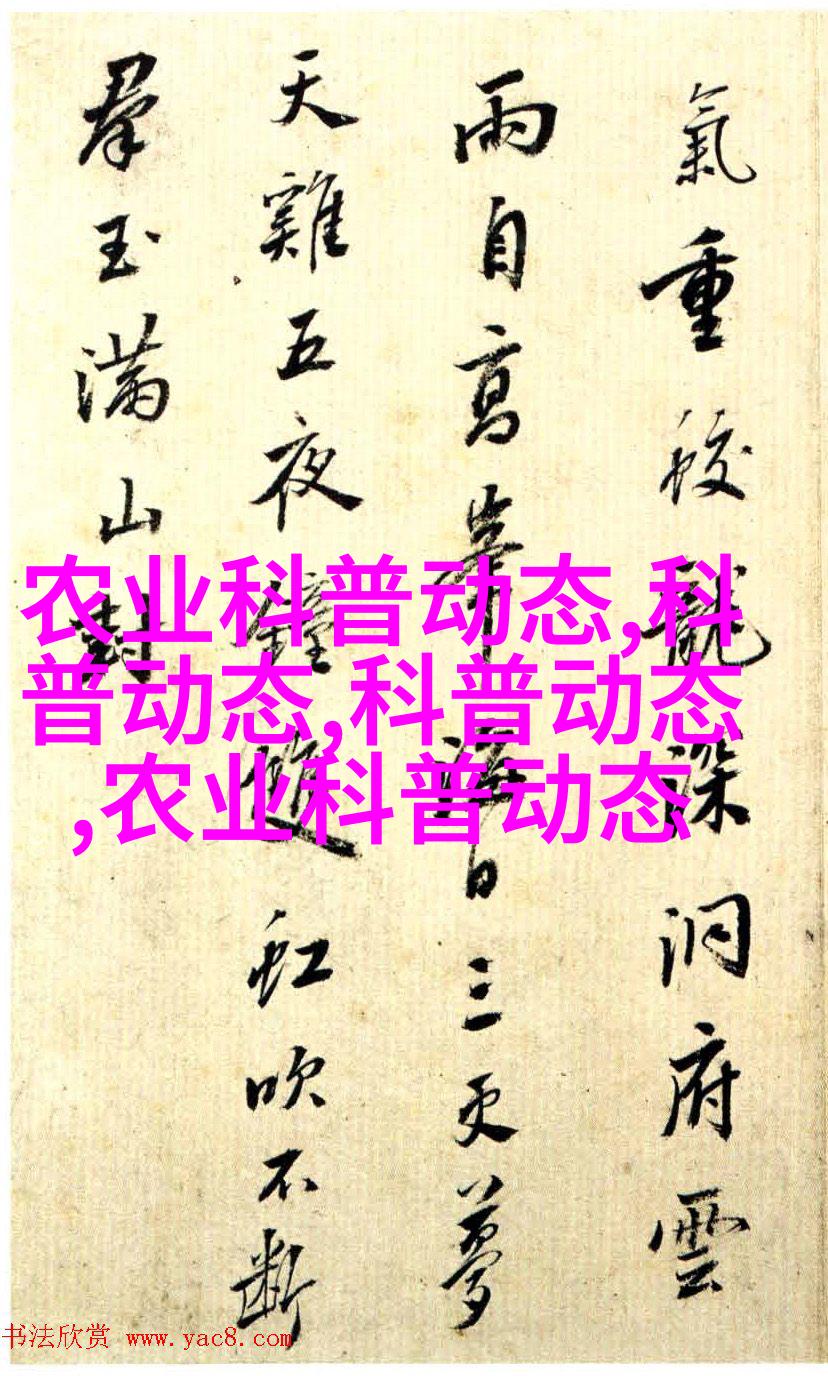 氣重蛟龍深洞府雲
雨自高峯海日三更夢
天雞五夜鐘雄虹吹不斷
羣玉滿山封
农业科普动态,科
普动态,科普动态
,农业科普动态
书法欣赏 www.yac8.com